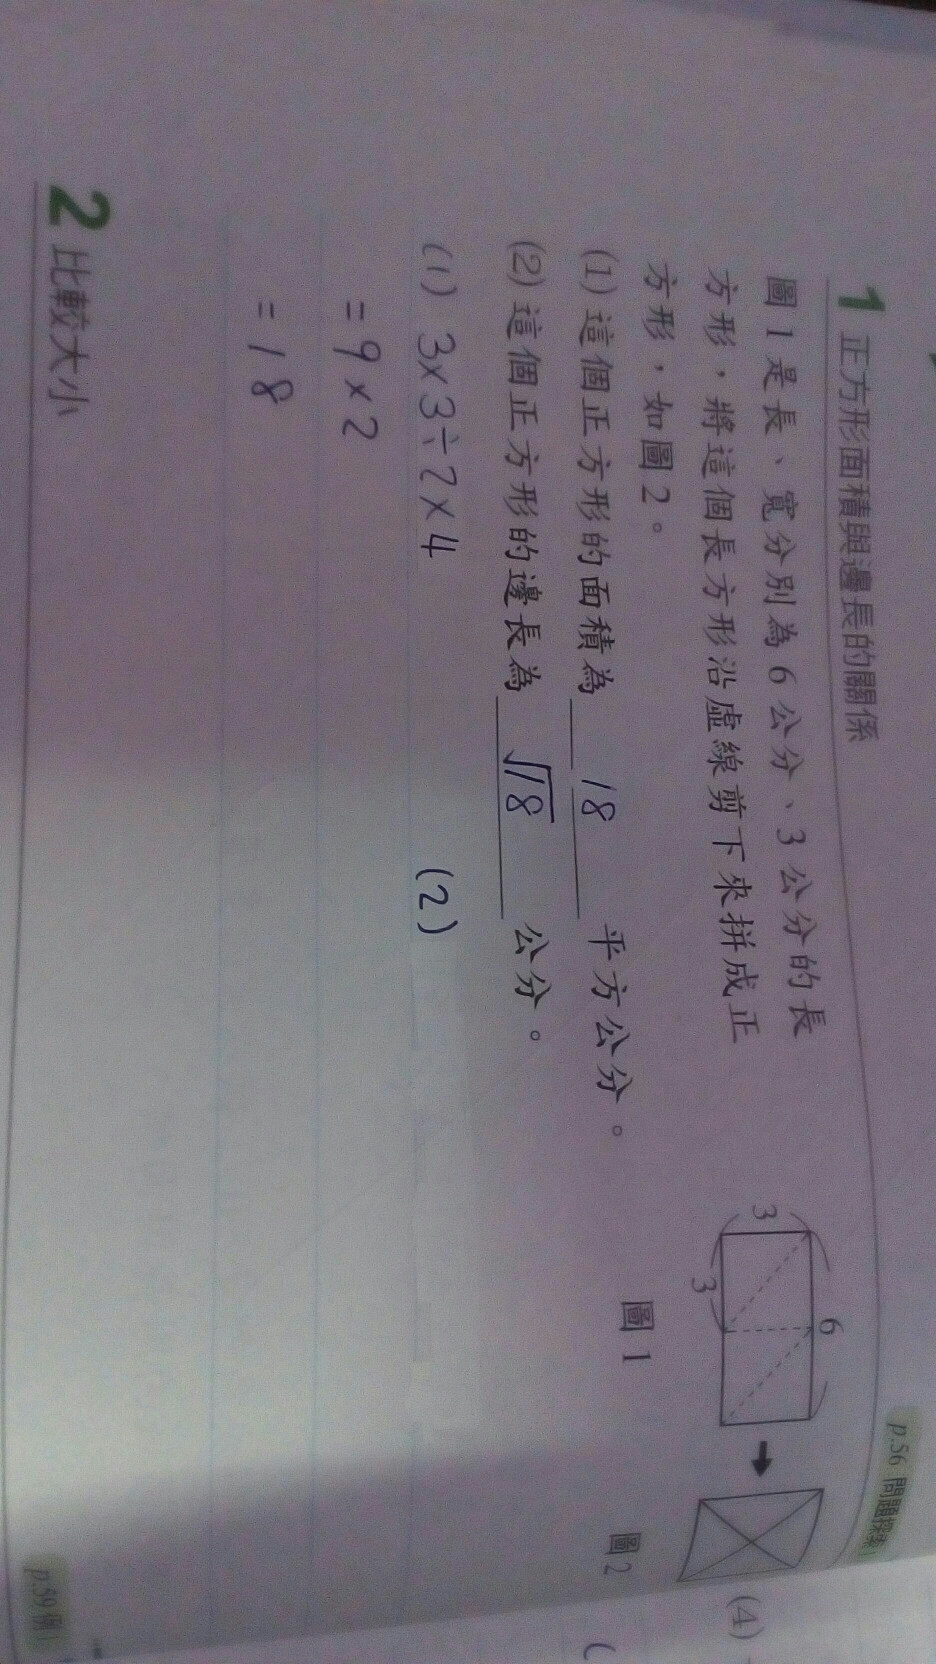 p.56 問題探索1
1 正方形面積與邊長的關係
圖1是長、寬分別為6公分、3公分的長
方形，將這個長方形沿虛線剪下來拼成正
方形，如圖2。
(1) 這個正方形的面積為 18 平方公分。
(2) 這個正方形的邊長為 √18 公分。
6
3
3
圖1
圖2
(4)
(
(1) 3×3÷2×4
= 9×2
= 18
(2)
2 比較大小
p.59 例1